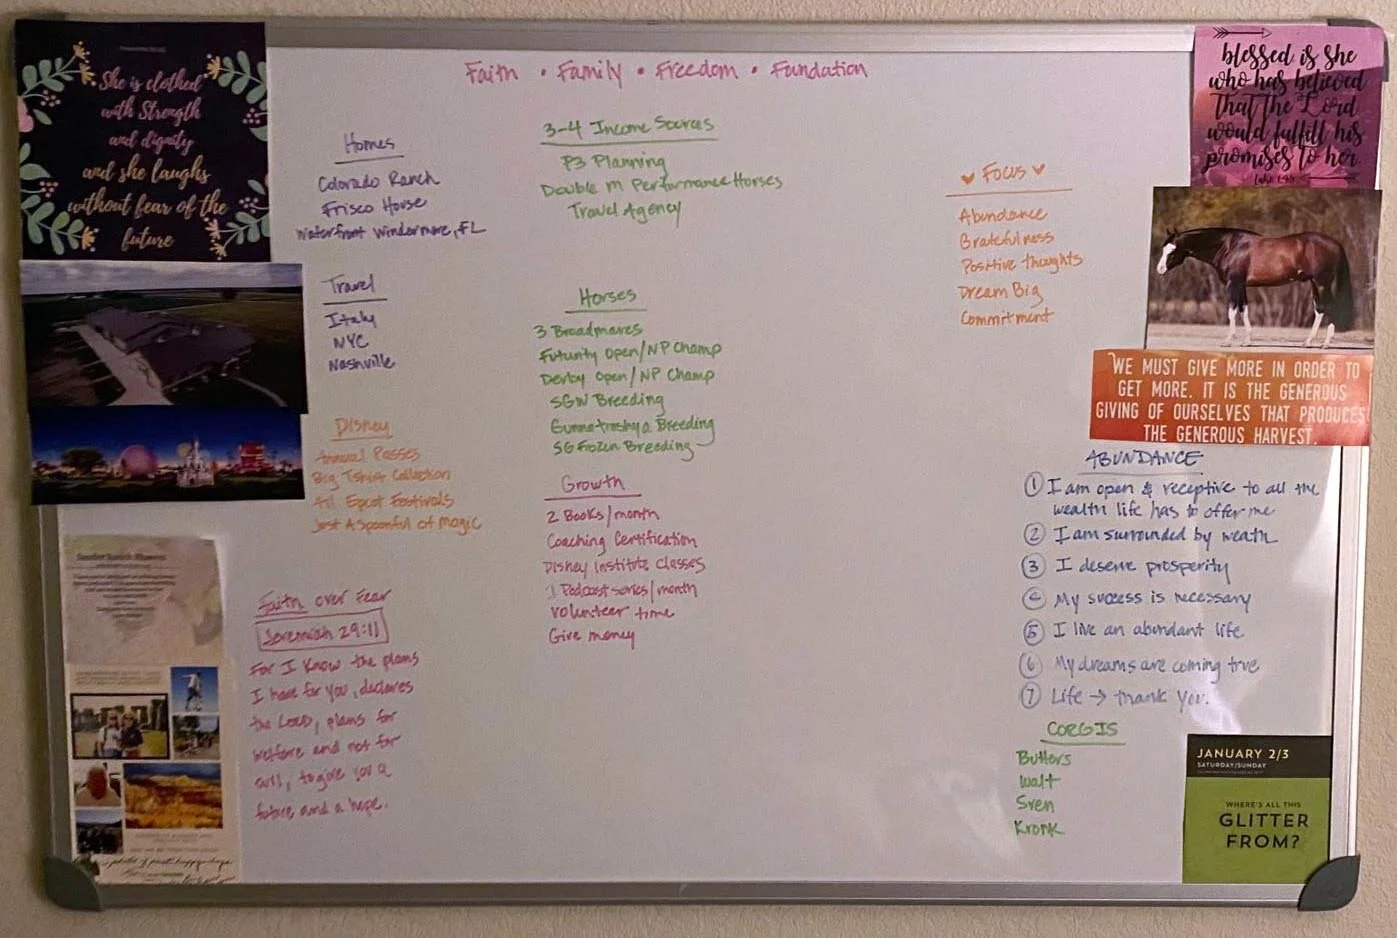 Faith • Family • Freedom • Fundation
She is clothed
with Strength
and dignity
and she laughs
without fear of the
future
Homes
Colorado Ranch
Frisco House
Waterfront Windermere, FL
Travel
Italy
NYC
Nashville
Disney
Annual Passes
Big Tshirt Collection
All Epcot Festivals
Just A Spoonful of Magic
Faith over Fear
Jeremiah 29:11
For I know the plans
I have for you, declares
the LORD, plans for
welfare and not for
evil, to give you a
future and a hope.
3-4 Income Sources
P3 Planning
Double M Performance Horses
Travel Agency
Horses
3 Broadmares
Futurity Open/NP Champ
Derby Open/NP Champ
SGW Breeding
Gunnatrashya Breeding
SG Frozen Breeding
Growth
2 Books/month
Coaching Certification
Disney Institute Classes
1 Podcast series/month
Volunteer time
Give money
Focus
Abundance
Gratefulness
Positive thoughts
Dream Big
Commitment
blessed is she
who has believed
that the Lord
would fulfill his
promises to her.
Luke 1:45
WE MUST GIVE MORE IN ORDER TO
GET MORE. IT IS THE GENEROUS
GIVING OF OURSELVES THAT PRODUCES
THE GENEROUS HARVEST.
ABUNDANCE
1 I am open & receptive to all the
wealth life has to offer me
2 I am surrounded by weath
3 I deserve prosperity
4 My success is necessary
5 I live an abundant life
6 My dreams are coming true
7 Life → thank you.
CORGIS
Butters
Walt
Sven
Kronk
JANUARY 2/3
SATURDAY/SUNDAY
WHERE'S ALL THIS
GLITTER
FROM?